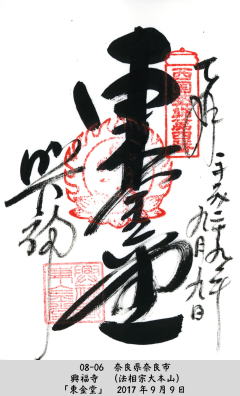 奉拝
平成二十九年
九月九日
東金堂
興福寺
08-06 奈良県奈良市
興福寺 (法相宗大本山)
「東金堂」 2017年9月9日